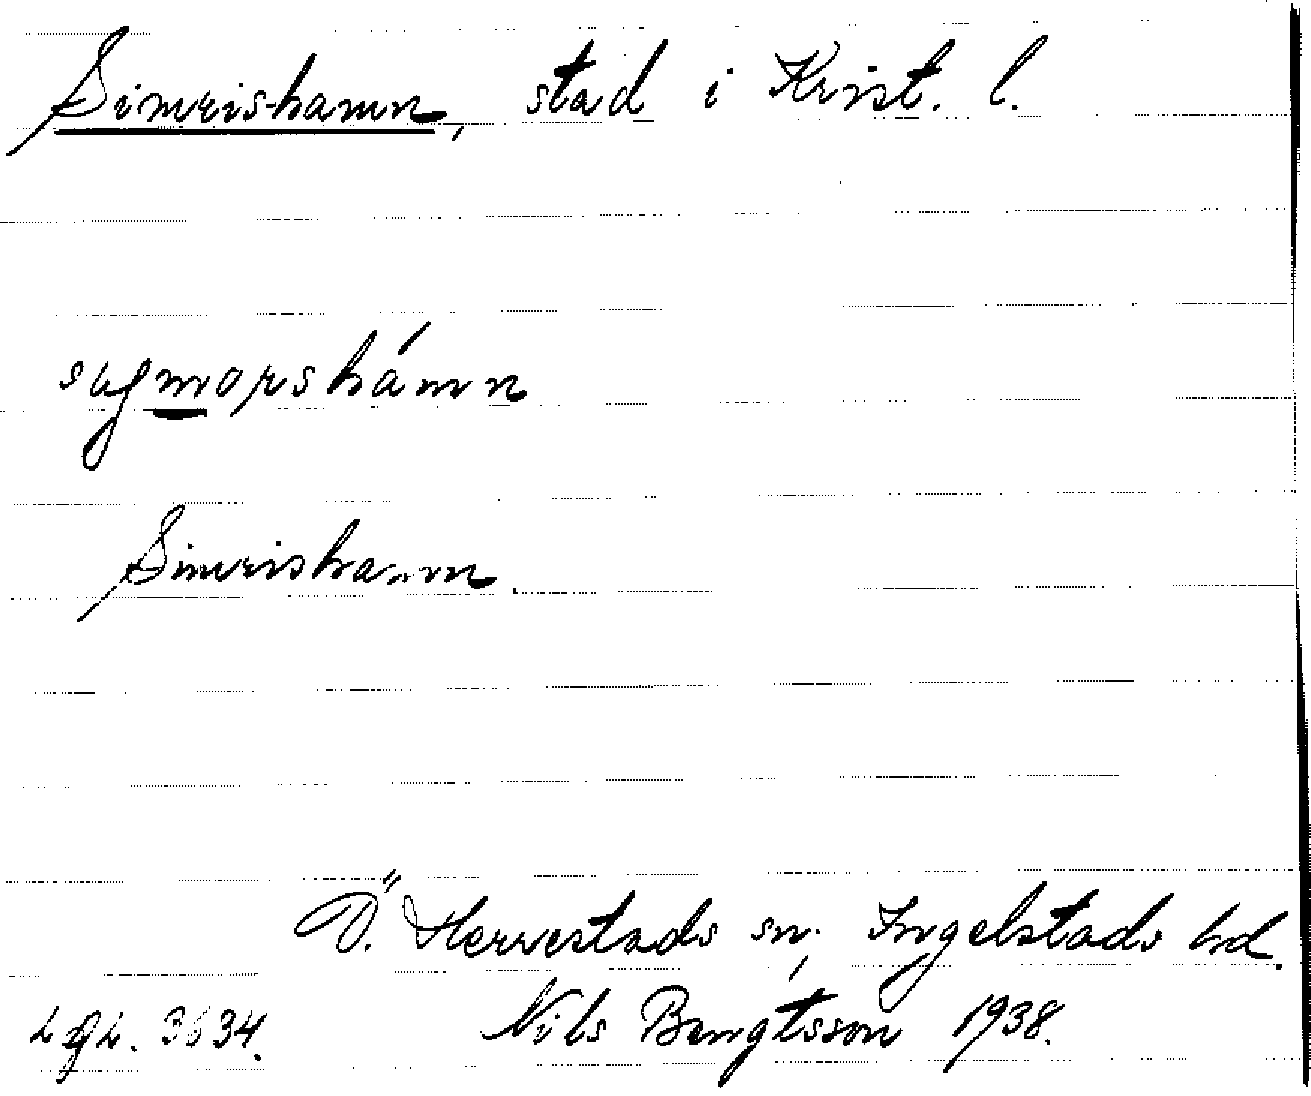 Simrishamn, stad i Krist. l.
Simrishamn
Ö. Herrestads sn, Ingelstads hd.
Lgr. 3634. Nils Bengtsson 1938.